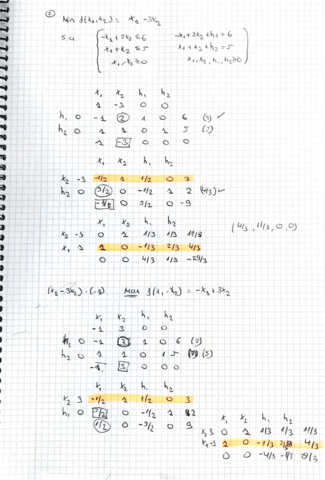 ② Min f(x₁,x₂) = x₁ - 3x₂
s.a { -x₁ + 2x₂ ≤ 6    -x₁ + 2x₂ + h₁ = 6
x₁ + x₂ ≤ 5    x₁ + x₂ + h₂ = 5
x₁, x₂ ≥ 0    x₁, x₂, h₁, h₂ ≥ 0
x₁ x₂ h₁ h₂
1 -3 0 0
h₁ 0 -1 2 1 0 6 (3) ✓
h₂ 0 1 1 0 1 5 (5)
1 -3 0 0 0
x₁ x₂ h₁ h₂
x₂ -3 -1/2 1 1/2 0 3
h₂ 0 3/2 0 -1/2 1 2 (4/3) ✓
-1/2 0 3/2 0 -9
x₁ x₂ h₁ h₂
x₂ -3 0 1 1/3 1/3 11/3
(4/3, 11/3, 0, 0)
x₁ 1 1 0 -1/3 2/3 4/3
0 0 4/3 1/3 -29/3
(x₁ - 3x₂)·(-1) Max f(x₁, x₂) = -x₁ + 3x₂
x₁ x₂ h₁ h₂
-1 3 0 0
h₁ 0 -1 2 1 0 6 (3)
h₂ 0 1 1 0 1 5 (5)
-1 3 0 0 0
x₁ x₂ h₁ h₂
x₂ 3 -1/2 1 1/2 0 3
h₂ 0 3/2 0 -1/2 1 2
1/2 0 -3/2 0 9
x₁ x₂ h₁ h₂
x₂ 3 0 1 1/3 1/3 11/3
x₁ -1 1 0 -1/3 2/3 4/3
0 0 -4/3 -1/3 29/3